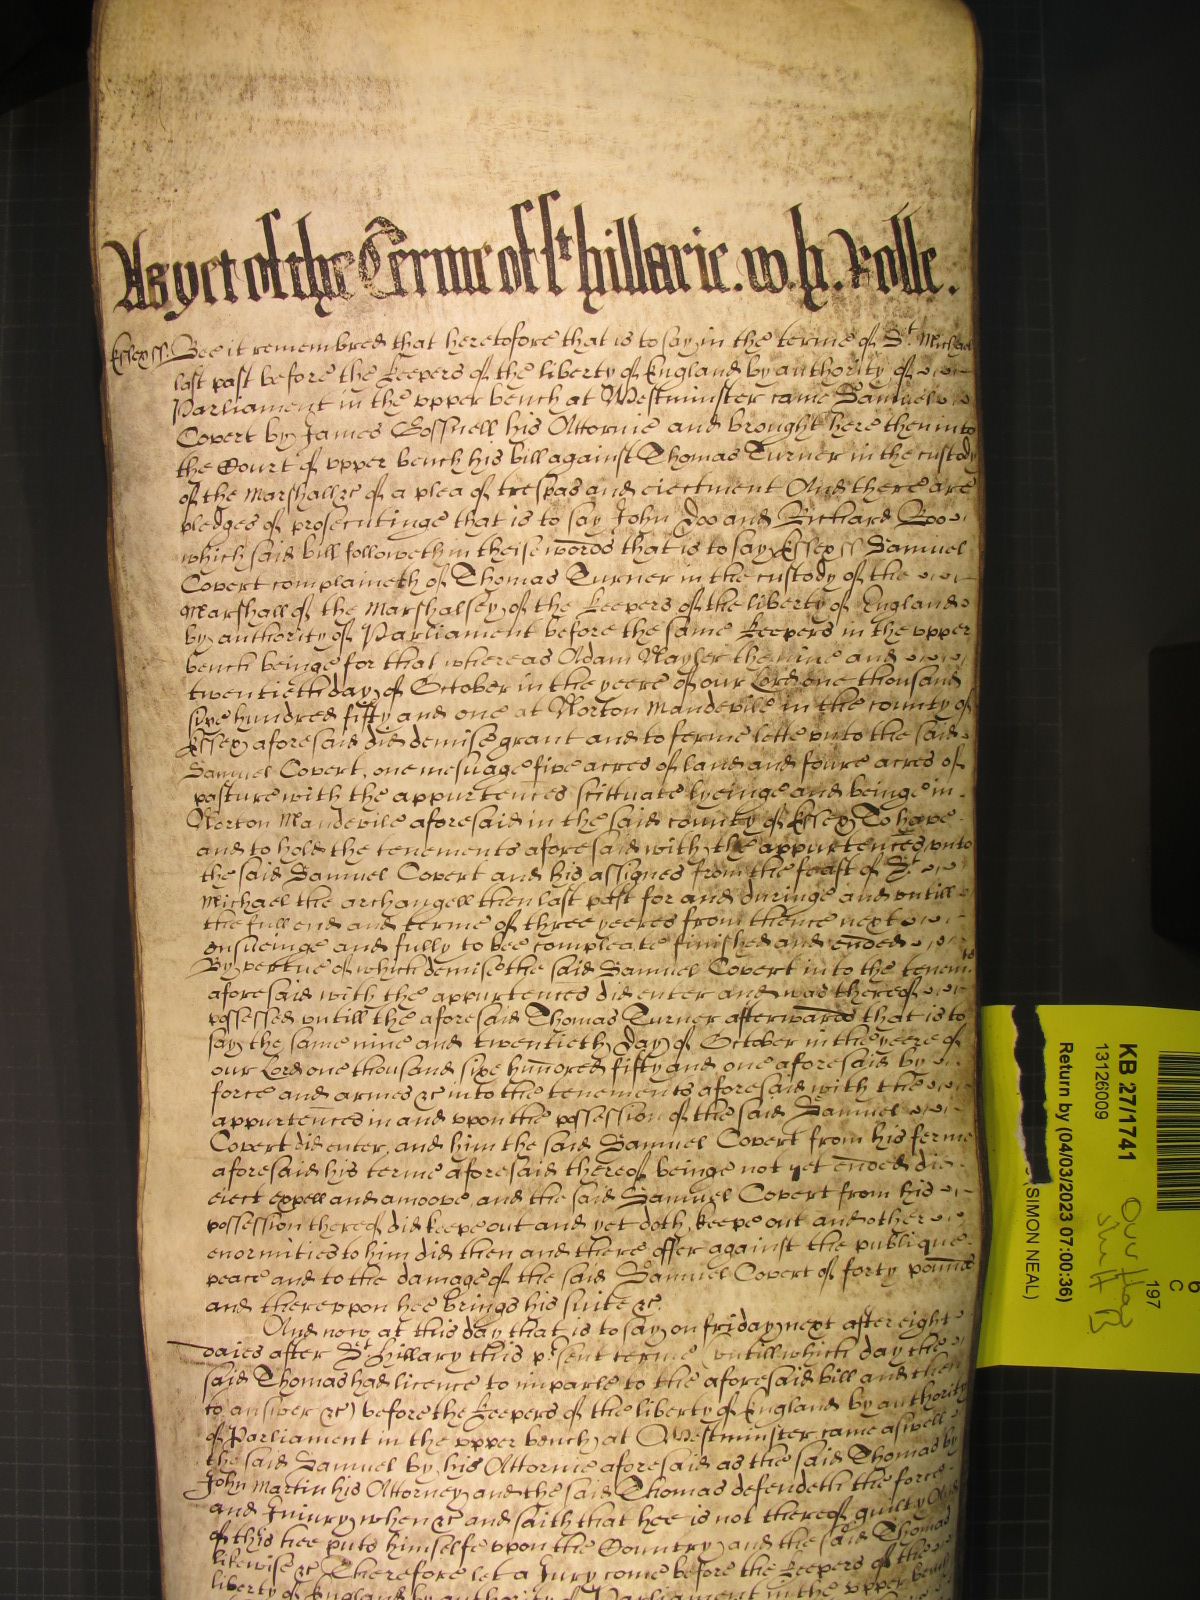 As yet of the Terme of St hillarie. w. h. Rolle.
Essex ss. Bee it remembred that heretofore that is to say in the terme of St Michael
last past before the Keepers of the liberty of England by authority of
Parliament in the upper bench at Westminster came Samuel
Covert by James Gossnell his Attornie and brought here then into
the Court of upper bench his bill against Thomas Turner in the custody
of the Marshall &c of a plea of trespas and eiectment And there are
pledges of prosecutinge that is to say John Doo and Richard Roo
which said bill followeth in theise words that is to say Essex ss Samuel
Covert complaineth of Thomas Turner in the custody of the
Marshall of the Marshalsey of the Keepers of the liberty of England
by authority of Parliament before the same Keepers in the upper
bench beinge for that whereas Adam Nayser the nine and
twentieth day of October in the yeere of our Lord one thousand
sixe hundred fifty and one at Norton Mandevile in the county of
Essex aforesaid did demise grant and to ferme lette unto the said
Samuel Covert, one mesuage five acres of land and foure acres of
pasture with the appurtences scittuate lyeinge and beinge in
Norton Mandevile aforesaid in the said county of Essex To have
and to hold the tenements aforesaid with the appurtences unto
the said Samuel Covert and his assignes from the feast of St
Michael the archangell then last past for and duringe and untill
the full end and terme of three yeeres from thence next
ensueinge and fully to bee compleate finished and ended
By vertue of which demise the said Samuel Covert into the tenemts
aforesaid with the appurtences did enter and was thereof
possessed untill the aforesaid Thomas Turner afterwards that is to
say the same nine and twentieth day of October in the yeere of
our Lord one thousand sixe hundred fifty and one aforesaid by
force and armes &c into the tenements aforesaid with the
appurtences in and upon the possession of the said Samuel
Covert did enter, and him the said Samuel Covert from his ferme
aforesaid his terme aforesaid thereof beinge not yet ended did
eiect expell and amoove, and the said Samuel Covert from his
possession thereof did keepe out and yet doth keepe out and other
enormities to him did then and there offer against the publique
peace and to the damage of the said Samuel Covert of forty pounds
and thereuppon hee brings his suite &c.
And now at this day that is to say on friday next after eight
daies after St Hillary this p'sent terme (untill which day the
said Thomas had licence to imparle to the aforesaid bill and then
to answer &c) before the Keepers of the liberty of England by authority
of Parliament in the upper bench at Westminster came aswell
the said Samuel by his Attornie aforesaid as the said Thomas by
John Martin his Attorney and the said Thomas defendeth the force
and Iniury when &c and saith that hee is not thereof guilty And
of this hee puts himselfe upon the Country and the said Thomas
likewise &c Therefore let a Jury come before the Keepers of the
liberty of England by authority of Parliament in the upper bench
KB 27/1741
13126009
Return by (04/03/2023 07:00:36)
(SIMON NEAL)
197
C
6